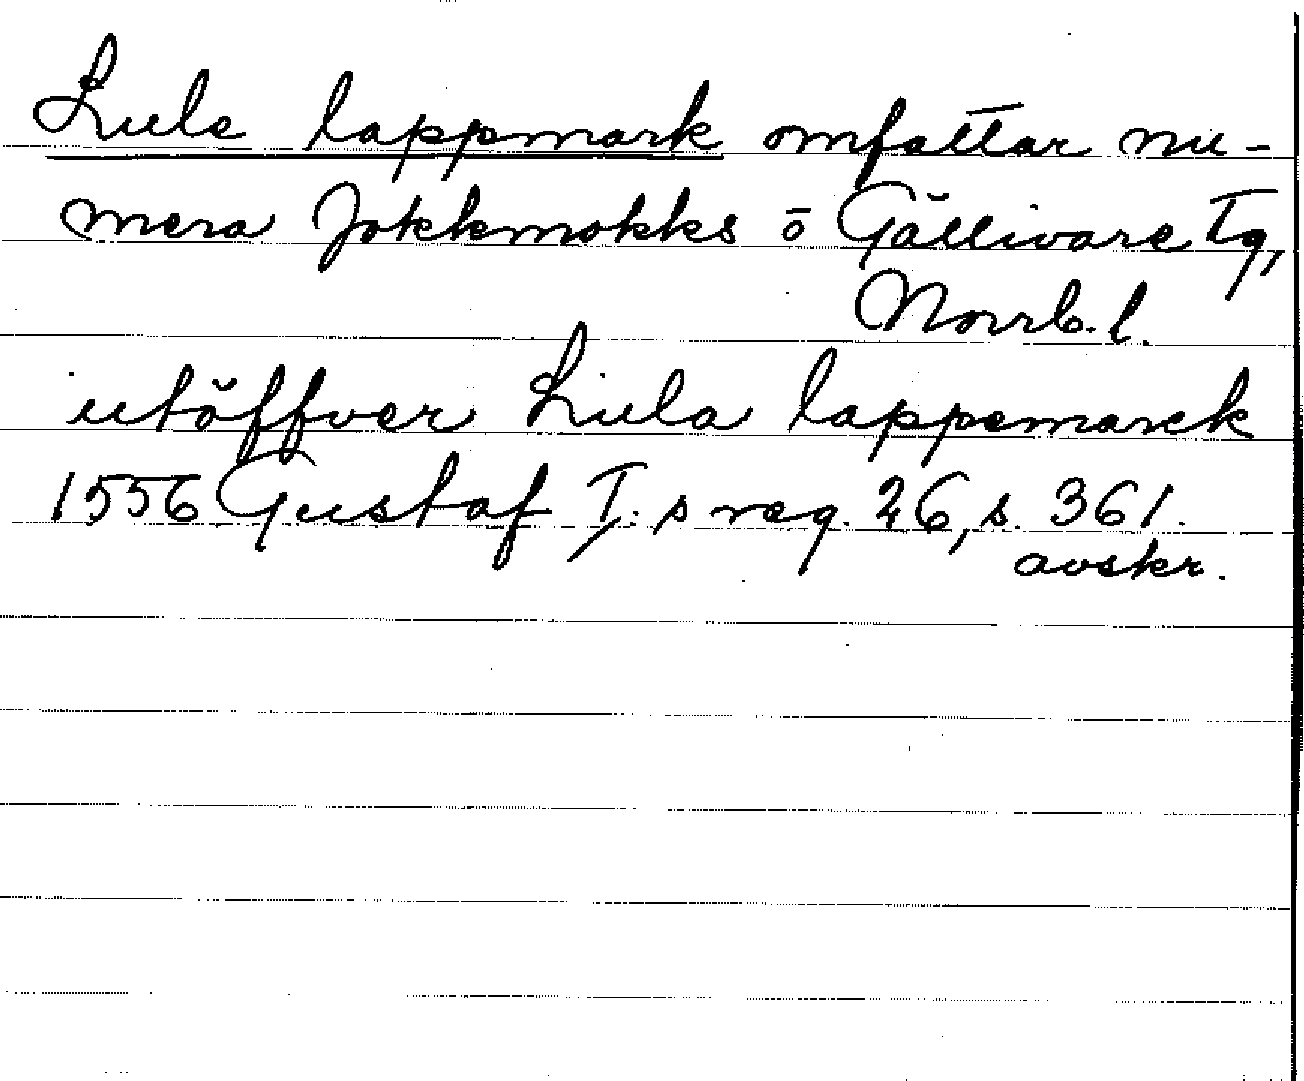 Lule lappmark omfattar nu-
mera Jokkmokks ō Gällivare Tg,
Norrb. l.
utöffver Lula lappemarck
1556 Gustaf I:s reg. 26, s. 361.
avskr.